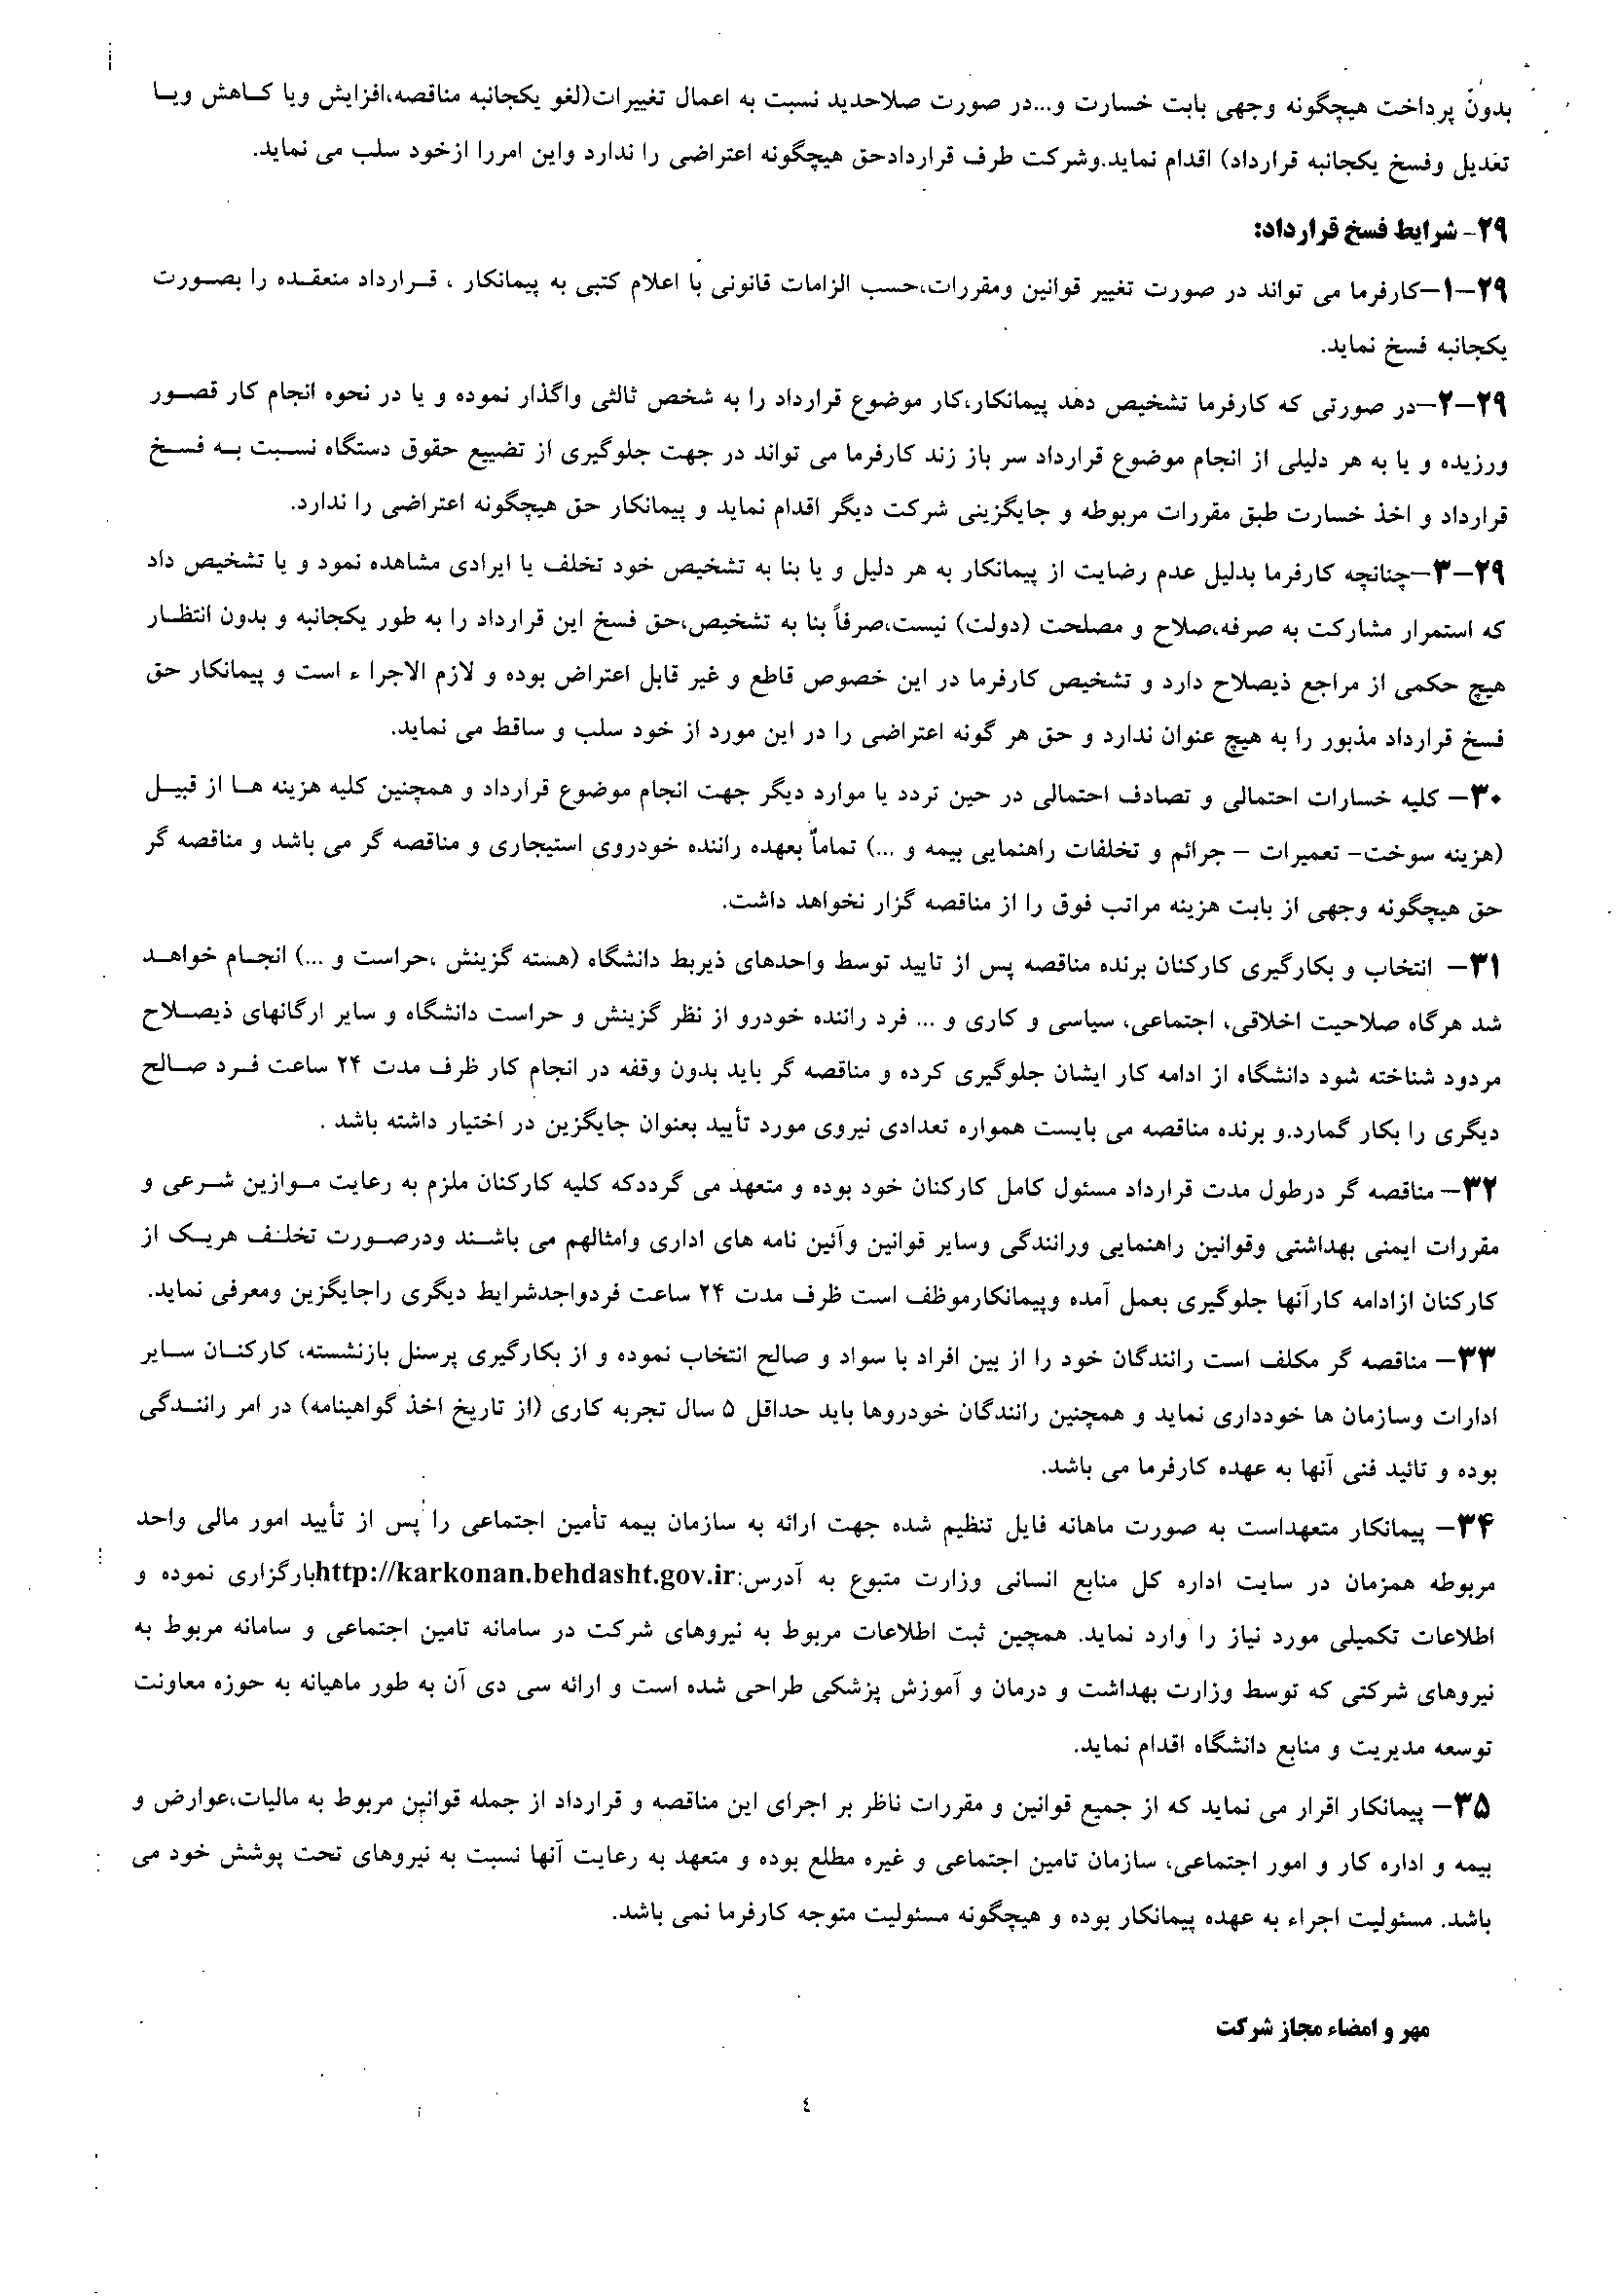 بدون پرداخت هیچگونه وجهی بابت خسارت و...در صورت صلاحدید نسبت به اعمال تغییرات(لغو یکجانبه مناقصه،افزایش ویا کاهش ویا
تعدیل وفسخ یکجانبه قرارداد) اقدام نماید.وشرکت طرف قراردادحق هیچگونه اعتراضی را ندارد واین امررا ازخود سلب می نماید.
۲۹- شرایط فسخ قرارداد:
۲۹-۱-کارفرما می تواند در صورت تغییر قوانین ومقررات،حسب الزامات قانونی با اعلام کتبی به پیمانکار ، قرارداد منعقده را بصورت
یکجانبه فسخ نماید.
۲۹-۲-در صورتی که کارفرما تشخیص دهد پیمانکار،کار موضوع قرارداد را به شخص ثالثی واگذار نموده و یا در نحوه انجام کار قصور
ورزیده و یا به هر دلیلی از انجام موضوع قرارداد سر باز زند کارفرما می تواند در جهت جلوگیری از تضییع حقوق دستگاه نسبت به فسخ
قرارداد و اخذ خسارت طبق مقررات مربوطه و جایگزینی شرکت دیگر اقدام نماید و پیمانکار حق هیچگونه اعتراضی را ندارد.
۲۹-۳-چنانچه کارفرما بدلیل عدم رضایت از پیمانکار به هر دلیل و یا بنا به تشخیص خود تخلف یا ایرادی مشاهده نمود و یا تشخیص داد
که استمرار مشارکت به صرفه،صلاح و مصلحت (دولت) نیست،صرفاً بنا به تشخیص،حق فسخ این قرارداد را به طور یکجانبه و بدون انتظار
هیچ حکمی از مراجع ذیصلاح دارد و تشخیص کارفرما در این خصوص قاطع و غیر قابل اعتراض بوده و لازم الاجرا ء است و پیمانکار حق
فسخ قرارداد مذبور را به هیچ عنوان ندارد و حق هر گونه اعتراضی را در این مورد از خود سلب و ساقط می نماید.
۳۰- کلیه خسارات احتمالی و تصادف احتمالی در حین تردد یا موارد دیگر جهت انجام موضوع قرارداد و همچنین کلیه هزینه ها از قبیل
(هزینه سوخت- تعمیرات - جرائم و تخلفات راهنمایی بیمه و ...) تماماً بعهده راننده خودروی استیجاری و مناقصه گر می باشد و مناقصه گر
حق هیچگونه وجهی از بابت هزینه مراتب فوق را از مناقصه گزار نخواهد داشت.
۳۱- انتخاب و بکارگیری کارکنان برنده مناقصه پس از تایید توسط واحدهای ذیربط دانشگاه (هسته گزینش ،حراست و ...) انجام خواهد
شد هرگاه صلاحیت اخلاقی، اجتماعی، سیاسی و کاری و ... فرد راننده خودرو از نظر گزینش و حراست دانشگاه و سایر ارگانهای ذیصلاح
مردود شناخته شود دانشگاه از ادامه کار ایشان جلوگیری کرده و مناقصه گر باید بدون وقفه در انجام کار ظرف مدت ۲۴ ساعت فرد صالح
دیگری را بکار گمارد.و برنده مناقصه می بایست همواره تعدادی نیروی مورد تأیید بعنوان جایگزین در اختیار داشته باشد .
۳۲- مناقصه گر درطول مدت قرارداد مسئول کامل کارکنان خود بوده و متعهد می گرددکه کلیه کارکنان ملزم به رعایت موازین شرعی و
مقررات ایمنی بهداشتی وقوانین راهنمایی ورانندگی وسایر قوانین وآئین نامه های اداری وامثالهم می باشند ودرصورت تخلف هریک از
کارکنان ازادامه کارآنها جلوگیری بعمل آمده وپیمانکارموظف است ظرف مدت ۲۴ ساعت فردواجدشرایط دیگری راجایگزین ومعرفی نماید.
۳۳- مناقصه گر مکلف است رانندگان خود را از بین افراد با سواد و صالح انتخاب نموده و از بکارگیری پرسنل بازنشسته، کارکنان سایر
ادارات وسازمان ها خودداری نماید و همچنین رانندگان خودروها باید حداقل ۵ سال تجربه کاری (از تاریخ اخذ گواهینامه) در امر رانندگی
بوده و تائید فنی آنها به عهده کارفرما می باشد.
۳۴- پیمانکار متعهداست به صورت ماهانه فایل تنظیم شده جهت ارائه به سازمان بیمه تأمین اجتماعی را پس از تأیید امور مالی واحد
مربوطه همزمان در سایت اداره کل منابع انسانی وزارت متبوع به آدرس:http://karkonan.behdasht.gov.irبارگزاری نموده و
اطلاعات تکمیلی مورد نیاز را وارد نماید. همچین ثبت اطلاعات مربوط به نیروهای شرکت در سامانه تامین اجتماعی و سامانه مربوط به
نیروهای شرکتی که توسط وزارت بهداشت و درمان و آموزش پزشکی طراحی شده است و ارائه سی دی آن به طور ماهیانه به حوزه معاونت
توسعه مدیریت و منابع دانشگاه اقدام نماید.
۳۵- پیمانکار اقرار می نماید که از جمیع قوانین و مقررات ناظر بر اجرای این مناقصه و قرارداد از جمله قوانین مربوط به مالیات،عوارض و
بیمه و اداره کار و امور اجتماعی، سازمان تامین اجتماعی و غیره مطلع بوده و متعهد به رعایت آنها نسبت به نیروهای تحت پوشش خود می
باشد. مسئولیت اجراء به عهده پیمانکار بوده و هیچگونه مسئولیت متوجه کارفرما نمی باشد.
مهر و امضاء مجاز شرکت
٤